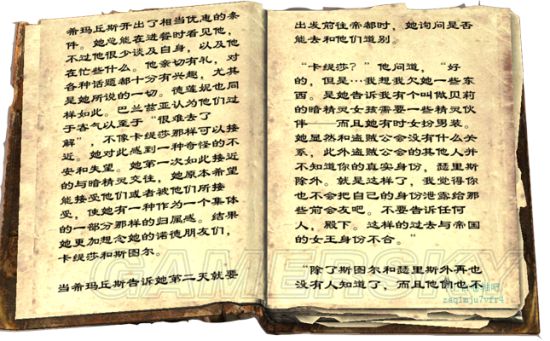 希玛丘斯开出了相当优惠的条
件。她总能在进餐时看见他，
不过他很少谈及自身，以及他
在忙些什么。他亲切有礼，对
各种话题都十分有兴趣，尤其
是她所说的一切。德莲妮也同
样如此。巴兰兹亚认为他们过
于客气以至于“很难去了
解”，不像卡缇莎那样可以接
近。她对此感到一种奇怪的不
安和失望。她第一次如此接近
的与暗精灵交往，她原本希望
能接受他们或者被他们所接
受，使她有一种作为一个集体
的一部分那样的归属感。结果
她更加想念她的诺德朋友们，
卡缇莎和斯图尔。
当希玛丘斯告诉她第二天就要
出发前往帝都时，她询问是否
能去和他们道别。
“卡缇莎？”他问道，“好
的，但是…我想我欠她一些东
西。是她告诉我有个叫做贝莉
的暗精灵女孩需要一些精灵伙
伴——而且她有时女扮男装。
她显然和盗贼公会没有什么关
系，此外盗贼公会的其他人并
不知道你的真实身份，瑟里斯
除外。就是这样了，我觉得你
也不会把自己的身份泄露给那
些前会友吧。不要告诉任何
人，殿下。这样的过去与帝国
的女王身份不合。”
“除了斯图尔和瑟里斯外再也
没有人知道了，而且他們也不
GAMERSKY
zaqimju7vfr4